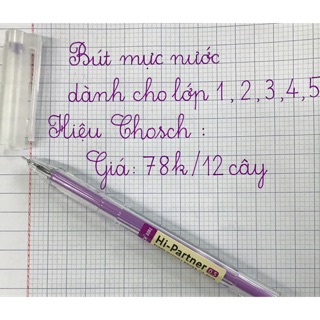 Bút mực nước
dành cho lớp 1, 2, 3, 4, 5
Hiệu Thosch :
Giá: 78k/12 cây
Hi-Partner